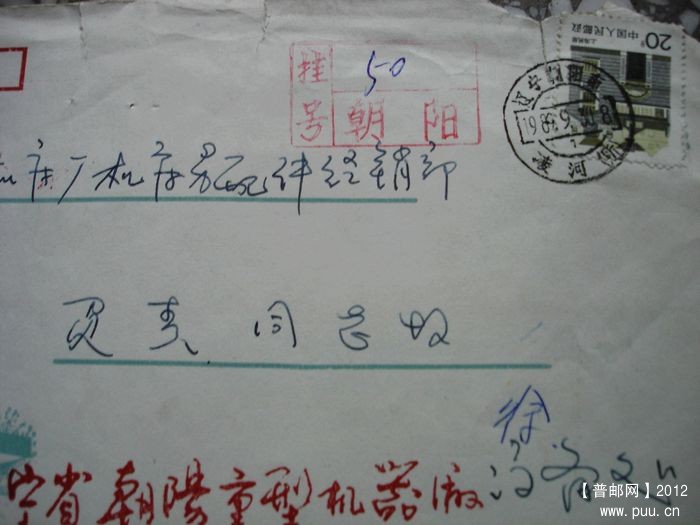 挂号 50
朝阳
20分
中国人民邮政
上海民居
辽宁朝阳
黄河
床厂机床易配件经销部
负责同志收
徐
宁省朝陽重型机器厰
【普邮网】2012
www.puu.cn